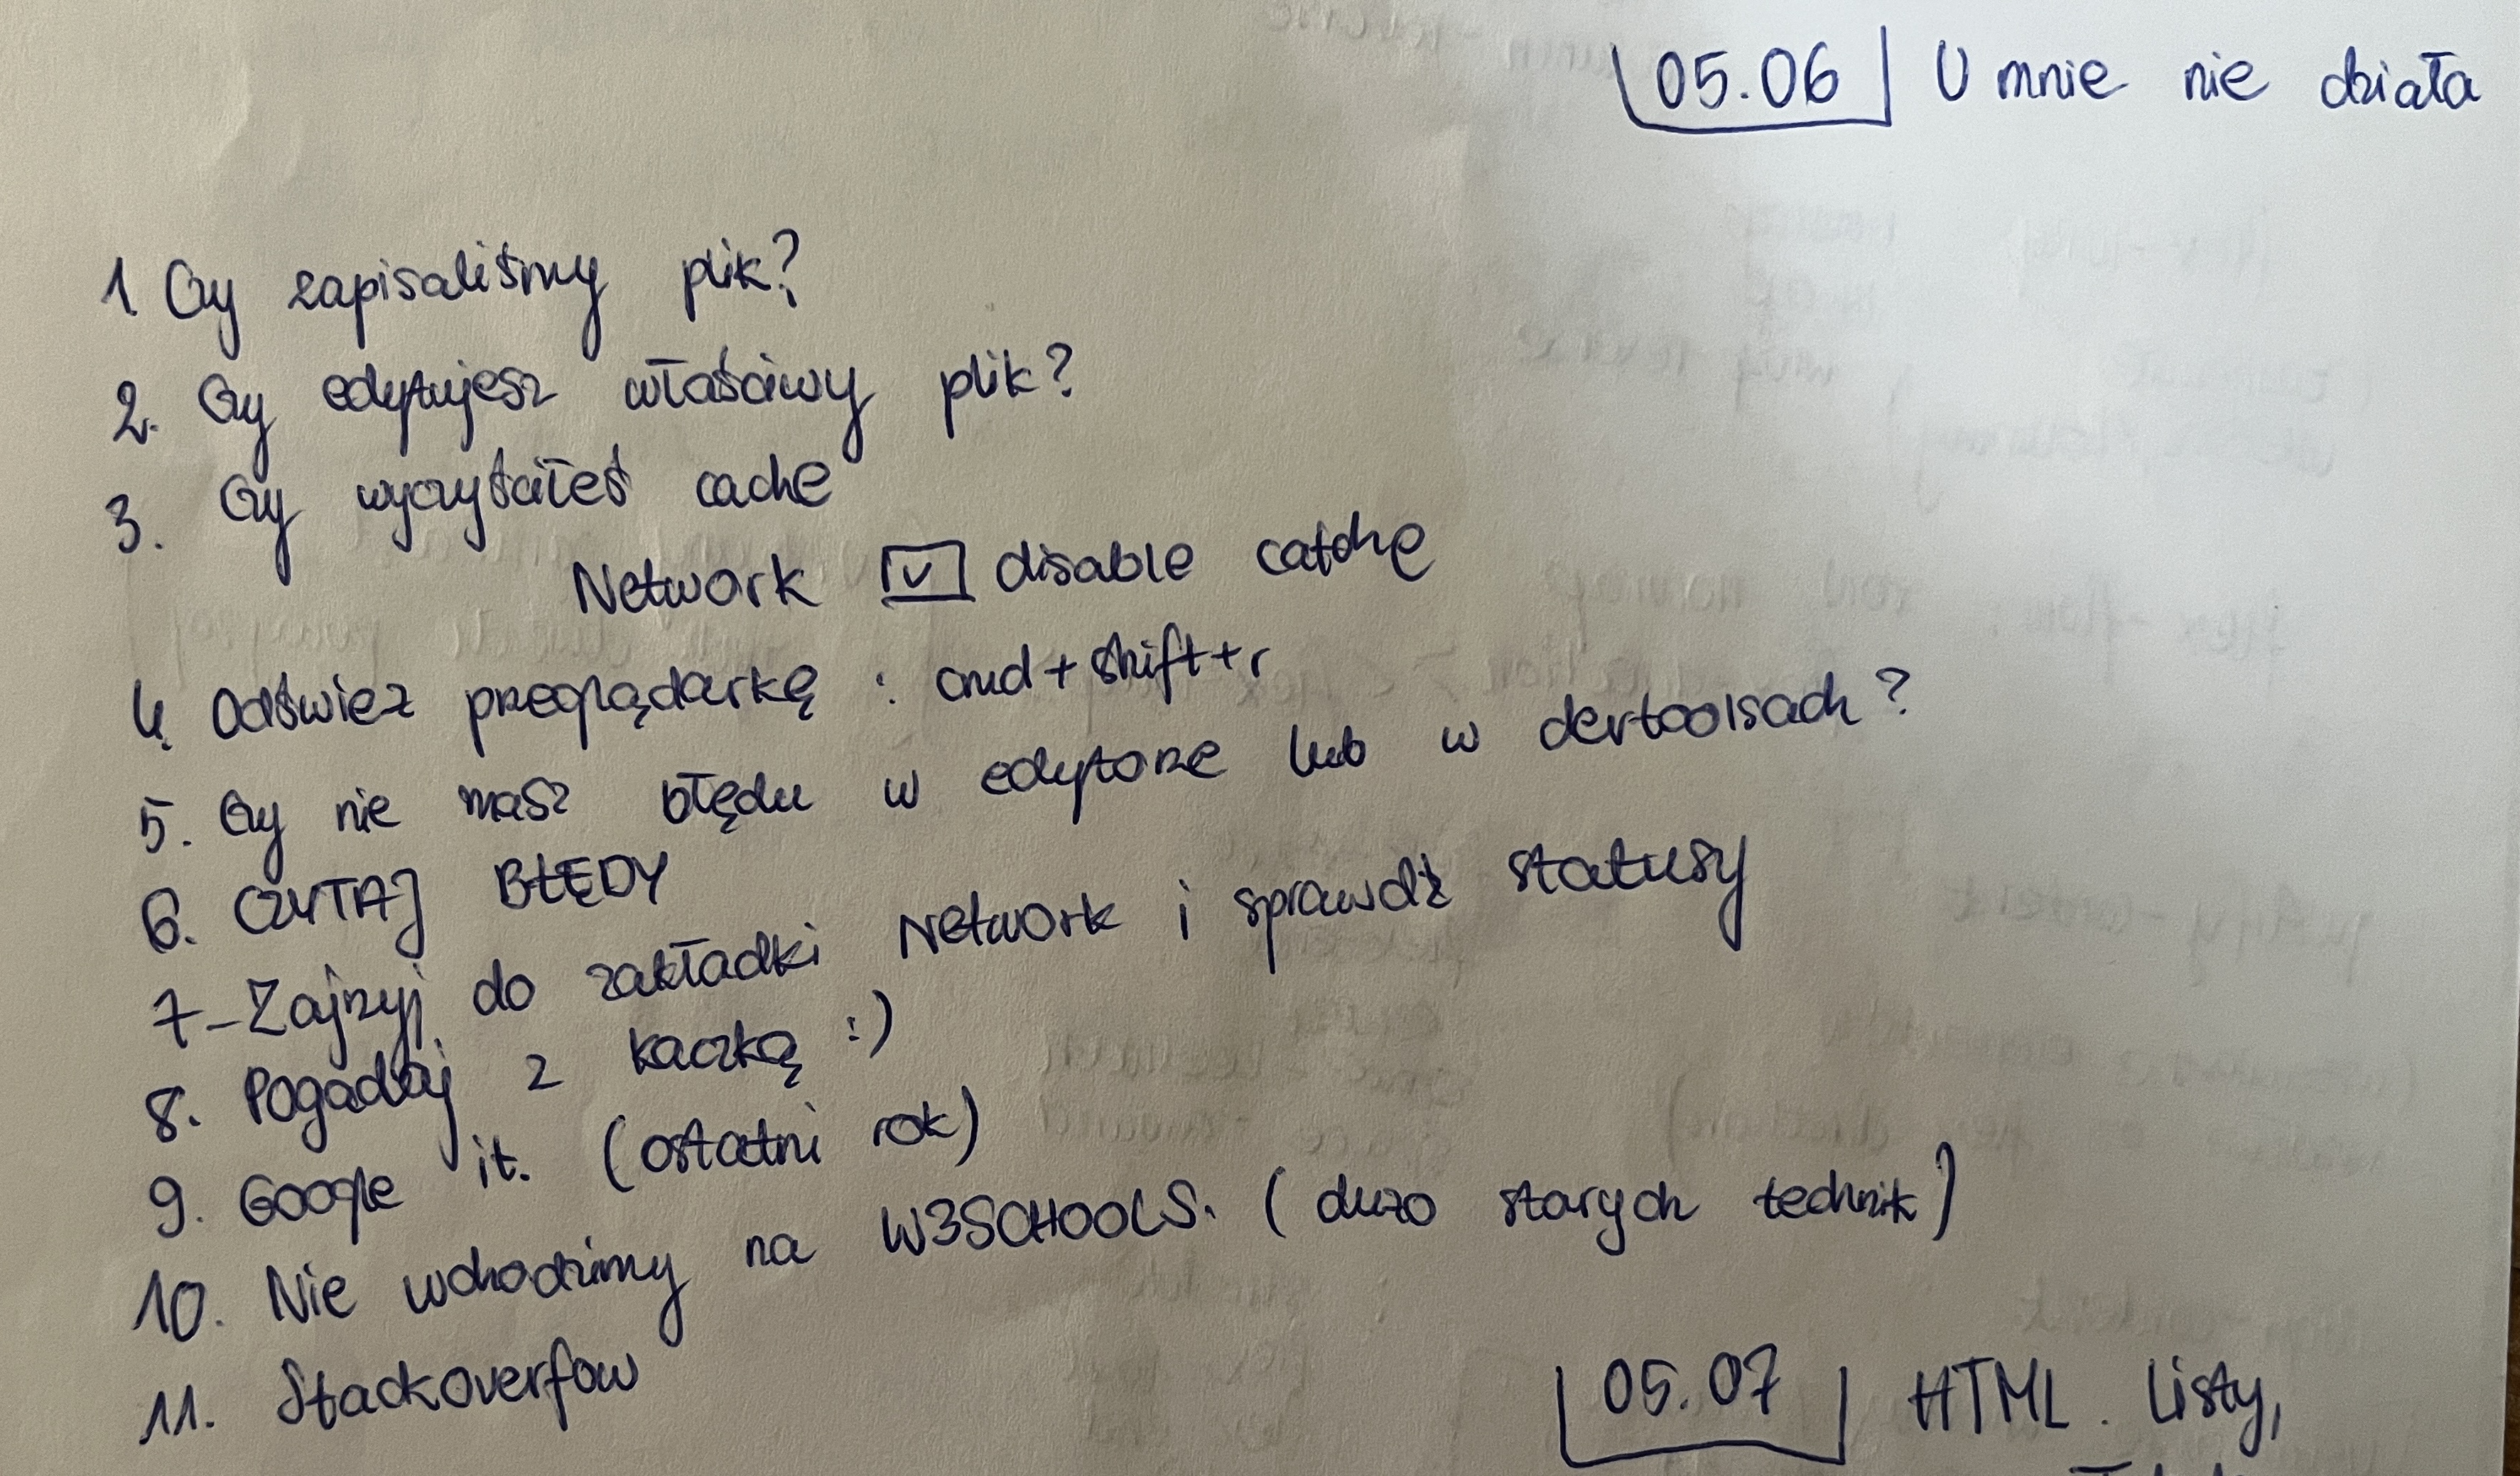 05.06 U mnie nie działa
1 Czy zapisaliśmy plik?
2. Czy edytujesz właściwy plik?
3. Czy wyczyściłeś cache
Network ☑ disable catche
4. Odśwież przeglądarkę : cmd + shift + r
5. Czy nie masz błędu w edytorze lub w devtoolsach?
6. CZYTAJ BŁĘDY
7 - Zajrzyj do zakładki Network i sprawdź statusy
8. Pogadaj z kaczką :)
9. Google it. (ostatni rok)
10. Nie wchodzimy na W3SCHOOLS. (dużo starych technik)
11. Stackoverfow
05.07 HTML. Listy,